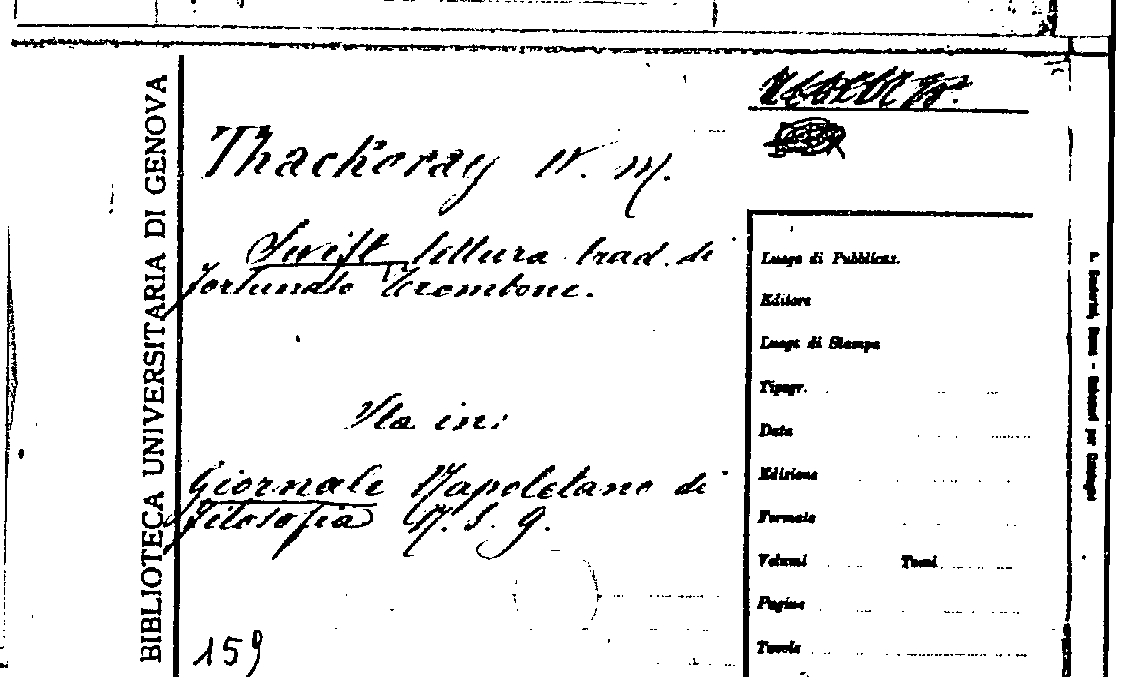 BIBLIOTECA UNIVERSITARIA DI GENOVA
Thackeray W. M.
Swift lettura trad. di
Fortunato Trombone.
Sta in:
Giornale Napoletano di
Filosofia N. S. 9.
159
Luogo di Pubblicaz.
Editore
Luogo di Stampa
Tipogr.
Data
Edizione
Formato
Volumi Tomi
Pagine
Tavole